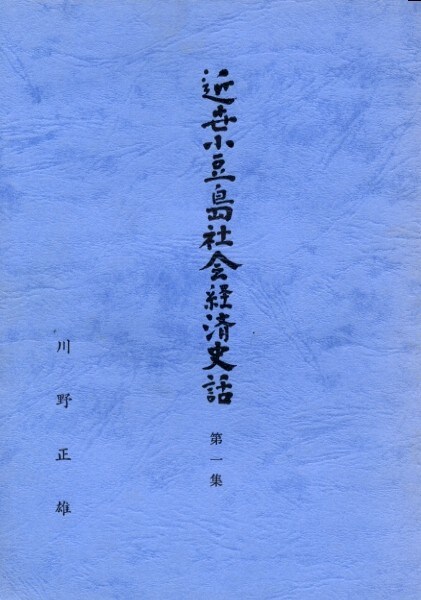 近世小豆島社会経済史話
第一集
川野正雄